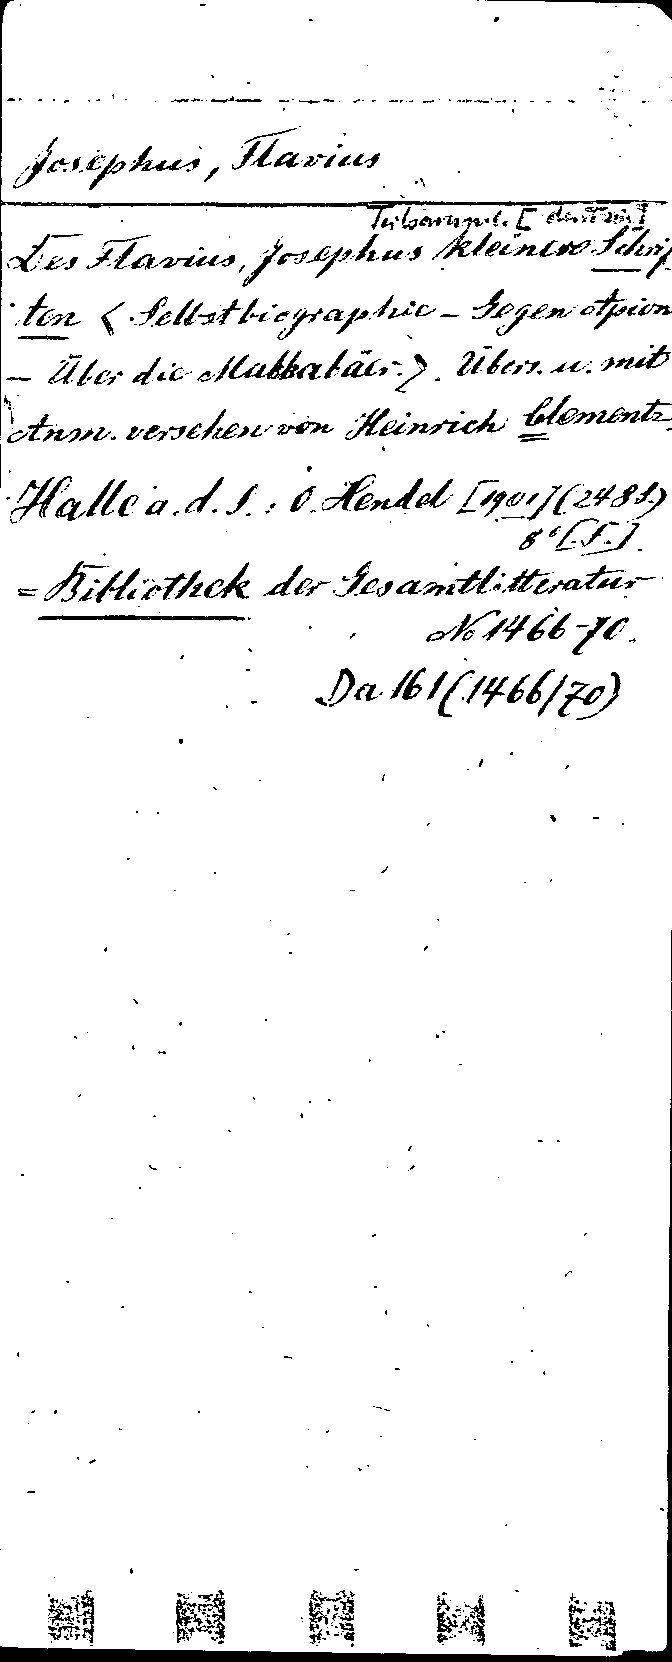 Josephus, Flavius
Teilsamml. [deutsch]
Des Flavius, Josephus kleinere Schrif
ten < Selbstbiographie - Gegen Apion
- Über die Makkabäer. >. Übers. u. mit
Anm. versehen von Heinrich Clementz.
Halle a. d. S. : O. Hendel [1901] (248 S.)
8° [S.].
= Bibliothek der Gesamtlitteratur
No 1466-70.
Da 161 (1466/70)